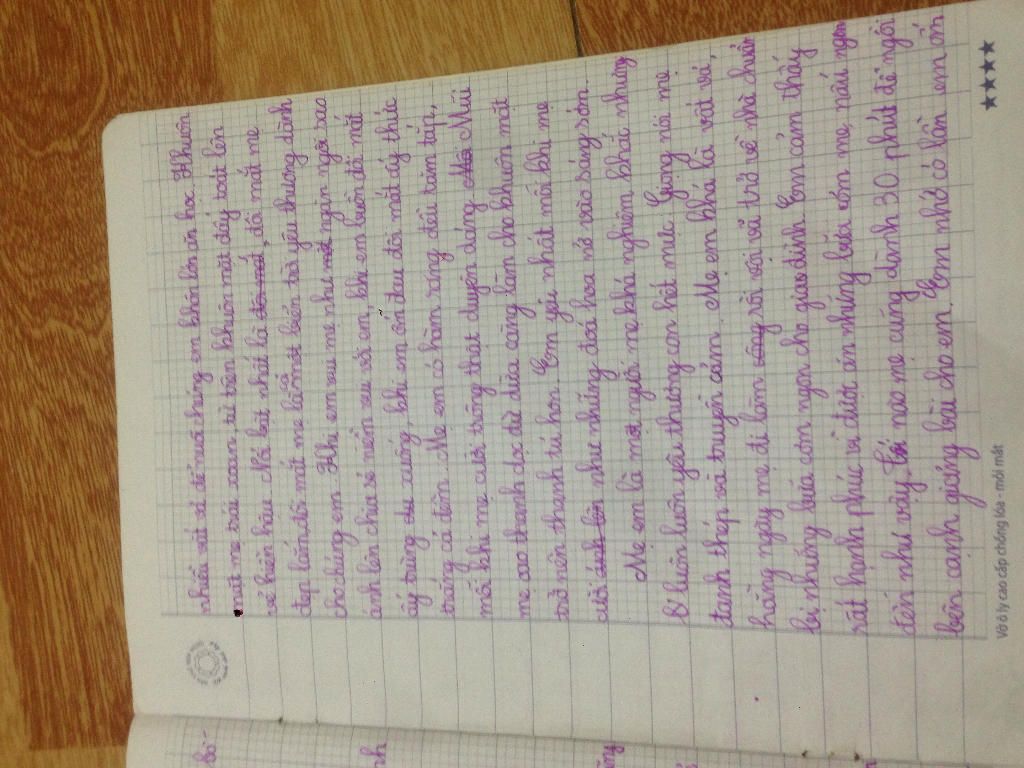 nhiều vất vả để nuôi chúng em khôn lớn ăn học. Khuôn
mặt mẹ trái xoan từ trên khuôn mặt ấy toát lên
vẻ hiền hậu. Nổi bật nhất là đôi mắt, đôi mắt mẹ
đẹp lắm, đôi mắt mẹ là cả một biển trời yêu thương dành
cho chúng em. Khi em vui mẹ như một ngàn ngôi sao
ánh lên chia sẻ niềm vui với em, khi em buồn đôi mắt
ấy trùng xuống, khi em ốn đau đôi mắt ấy thức
trắng cả đêm. Mẹ em có hàm răng đều tăm tắp,
mỗi khi mẹ cười trông thật duyên dáng. Mũi
mẹ cao thanh dọc dừ dừa càng làm cho khuôn mặt
trở nên thanh tú hơn. Em yêu nhất mỗi khi mẹ
cười như những đoá hoa nở vào sáng sớm.
Mẹ em là một người mẹ khá nghiêm khắc nhưng
luôn luôn yêu thương con hết mực. Giọng nói mẹ
thanh thép và truyện cảm. Mẹ em khá là vất vả,
hằng ngày mẹ đi làm rồi vội vã trở về nhà chuẩn
bị những bữa cơm ngon cho giao đình. Em cảm thấy
rất hạnh phúc vì được ăn những bữa cơm mẹ nấu ngon
đến như vậy. Tối nào mẹ cũng dành 30 phút để ngồi
bên cạnh giảng bài cho em. Em nhớ có lần em ốn
Vở ô ly cao cấp chống lóa - mỏi mắt
★★★★